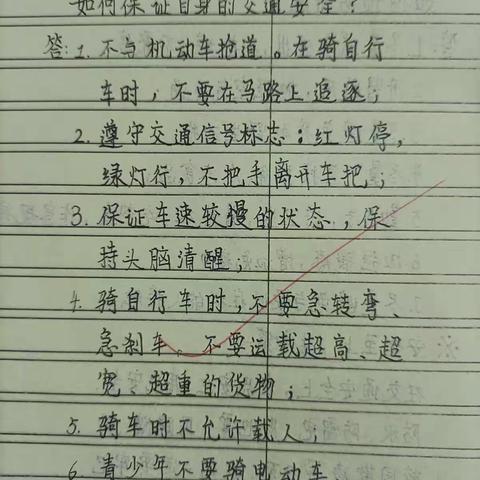 如何保证自身的交通安全?
答:1. 不与机动车抢道。在骑自行
车时,不要在马路上追逐;
2. 遵守交通信号标志:红灯停,
绿灯行,不把手离开车把;
3. 保证车速较慢的状态,保
持头脑清醒;
4. 骑自行车时,不要急转弯、
急刹车。不要运载超高、超
宽、超重的货物;
5. 骑车时不允许载人;
6. 青少年不要骑电动车